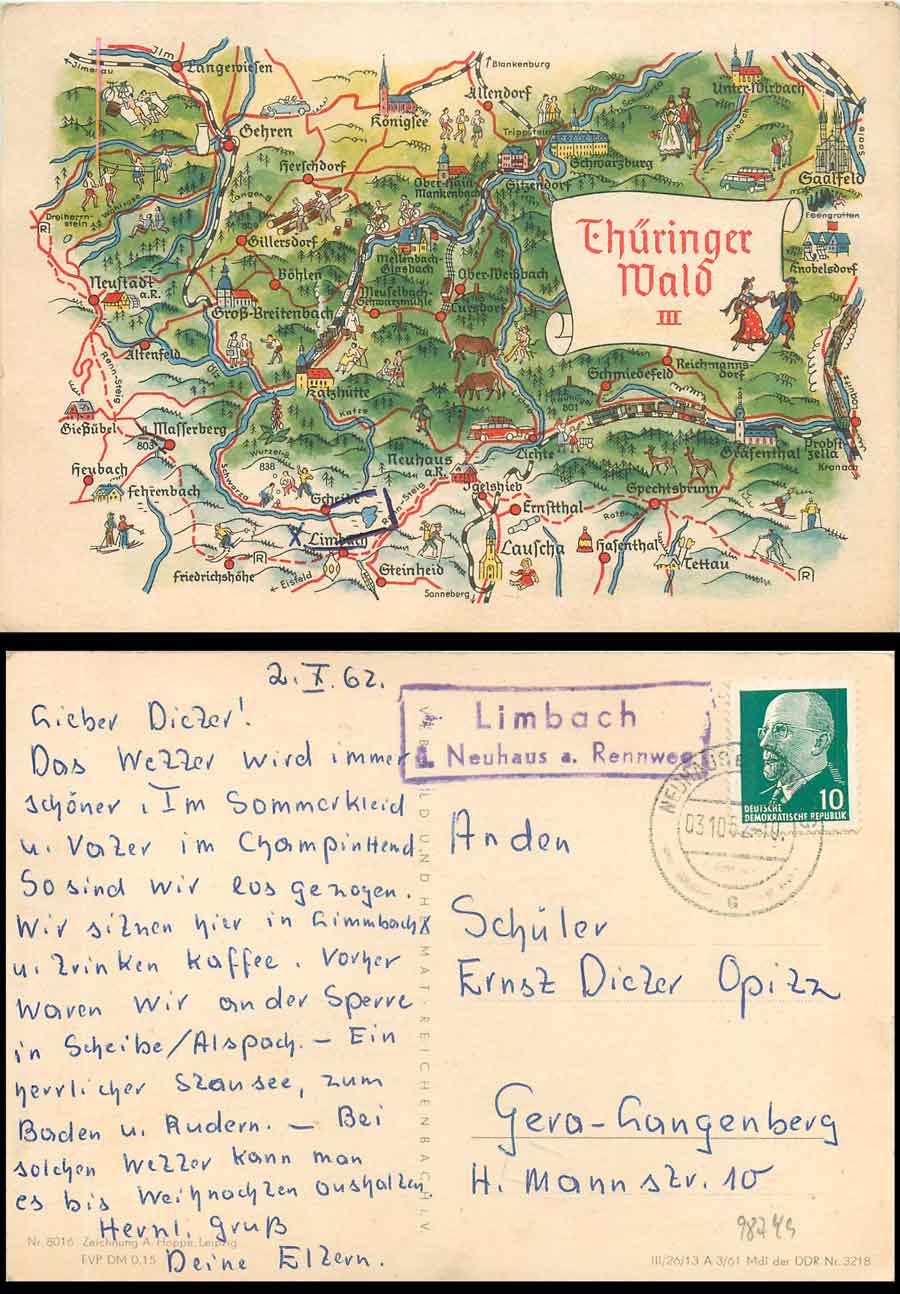 Ilm
←Ilmenau
Langewiesen
Blankenburg
Allendorf
Unter-Wirbach
Gehren
Königsee
Trippstein
Schwarza
Wirbach
Saale
Schwarzburg
Saalfeld
Herschdorf
Ober-Hain
Mankenbach
Sitzendorf
Dreiherrn-
stein
Wohlrose
Langer B.
Feengrotten
R
Gillersdorf
Thüringer
Wald
III
Knobelsdorf
Mellenbach-
Glasbach
Ober-Weißbach
Böhlen
Neustadt
a.R.
Meuselbach-
Schwarzmühle
Cursdorf
Groß-Breitenbach
Altenfeld
Renn-Steig
Ölze
Reichmanns-
dorf
Schmiedefeld
Katzhütte
Katze
801
Loquitz
Gießübel
Masserberg
803
Lichte
Gräfenthal
Probst-
zella
Kronach
Heubach
Wurzelb.
838
Neuhaus
a.R.
Schwarza
Fehrenbach
Scheibe
Renn-Steig
Igelshieb
Spechtsbrunn
Ernstthal
X Limbach
R
Lauscha
Hasenthal
Friedrichshöhe
←Eisfeld
Steinheid
Tettau
R
Sonneberg
2. X. 62.
Lieber Dieter!
Das Wetter wird immer
schöner. Im Sommerkleid
u. Vater im Champinttend
So sind wir los gezogen.
Wir sitzen hier in Limmbach X
u. trinken Kaffee. Vorher
waren wir an der Sperre
in Scheibe/Alspach. – Ein
herrlicher Stausee, zum
Baden u. Rudern. – Bei
solchen Wetter kann man
es bis Weihnachten aushalten.
Herzl. Gruß
Deine Eltern.
Nr. 8016 Zeichnung A. Hoppe, Leipzig
EVP DM 0,15
VEB BILD UND HEIMAT · REICHENBACH I. V.
Limbach
Neuhaus a. Rennweg
NEUHAUS
03.10.62
G
10
DEUTSCHE
DEMOKRATISCHE REPUBLIK
An den
Schüler
Ernst Dieter Opitz
Gera-Langenberg
H. Mannstr. 10
III/26/13 A 3/61 MdI der DDR Nr. 3218